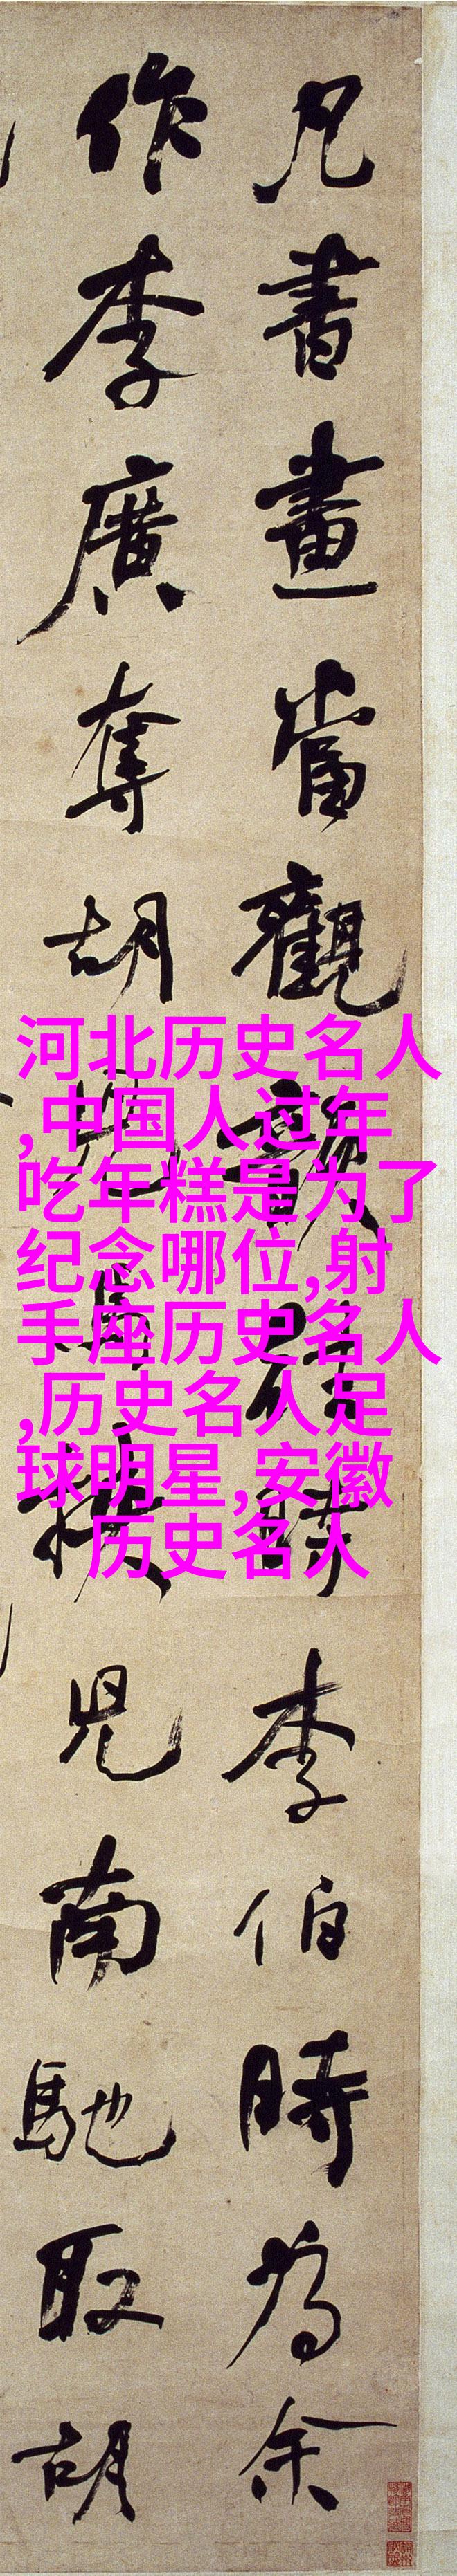 凡書畫當觀韻往時李伯時為余
作李廣奪胡兒馬挾兒南馳取胡
河北历史名人
,中国人过年
吃年糕是为了
纪念哪位,射
手座历史名人
,历史名人足
球明星,安徽
历史名人